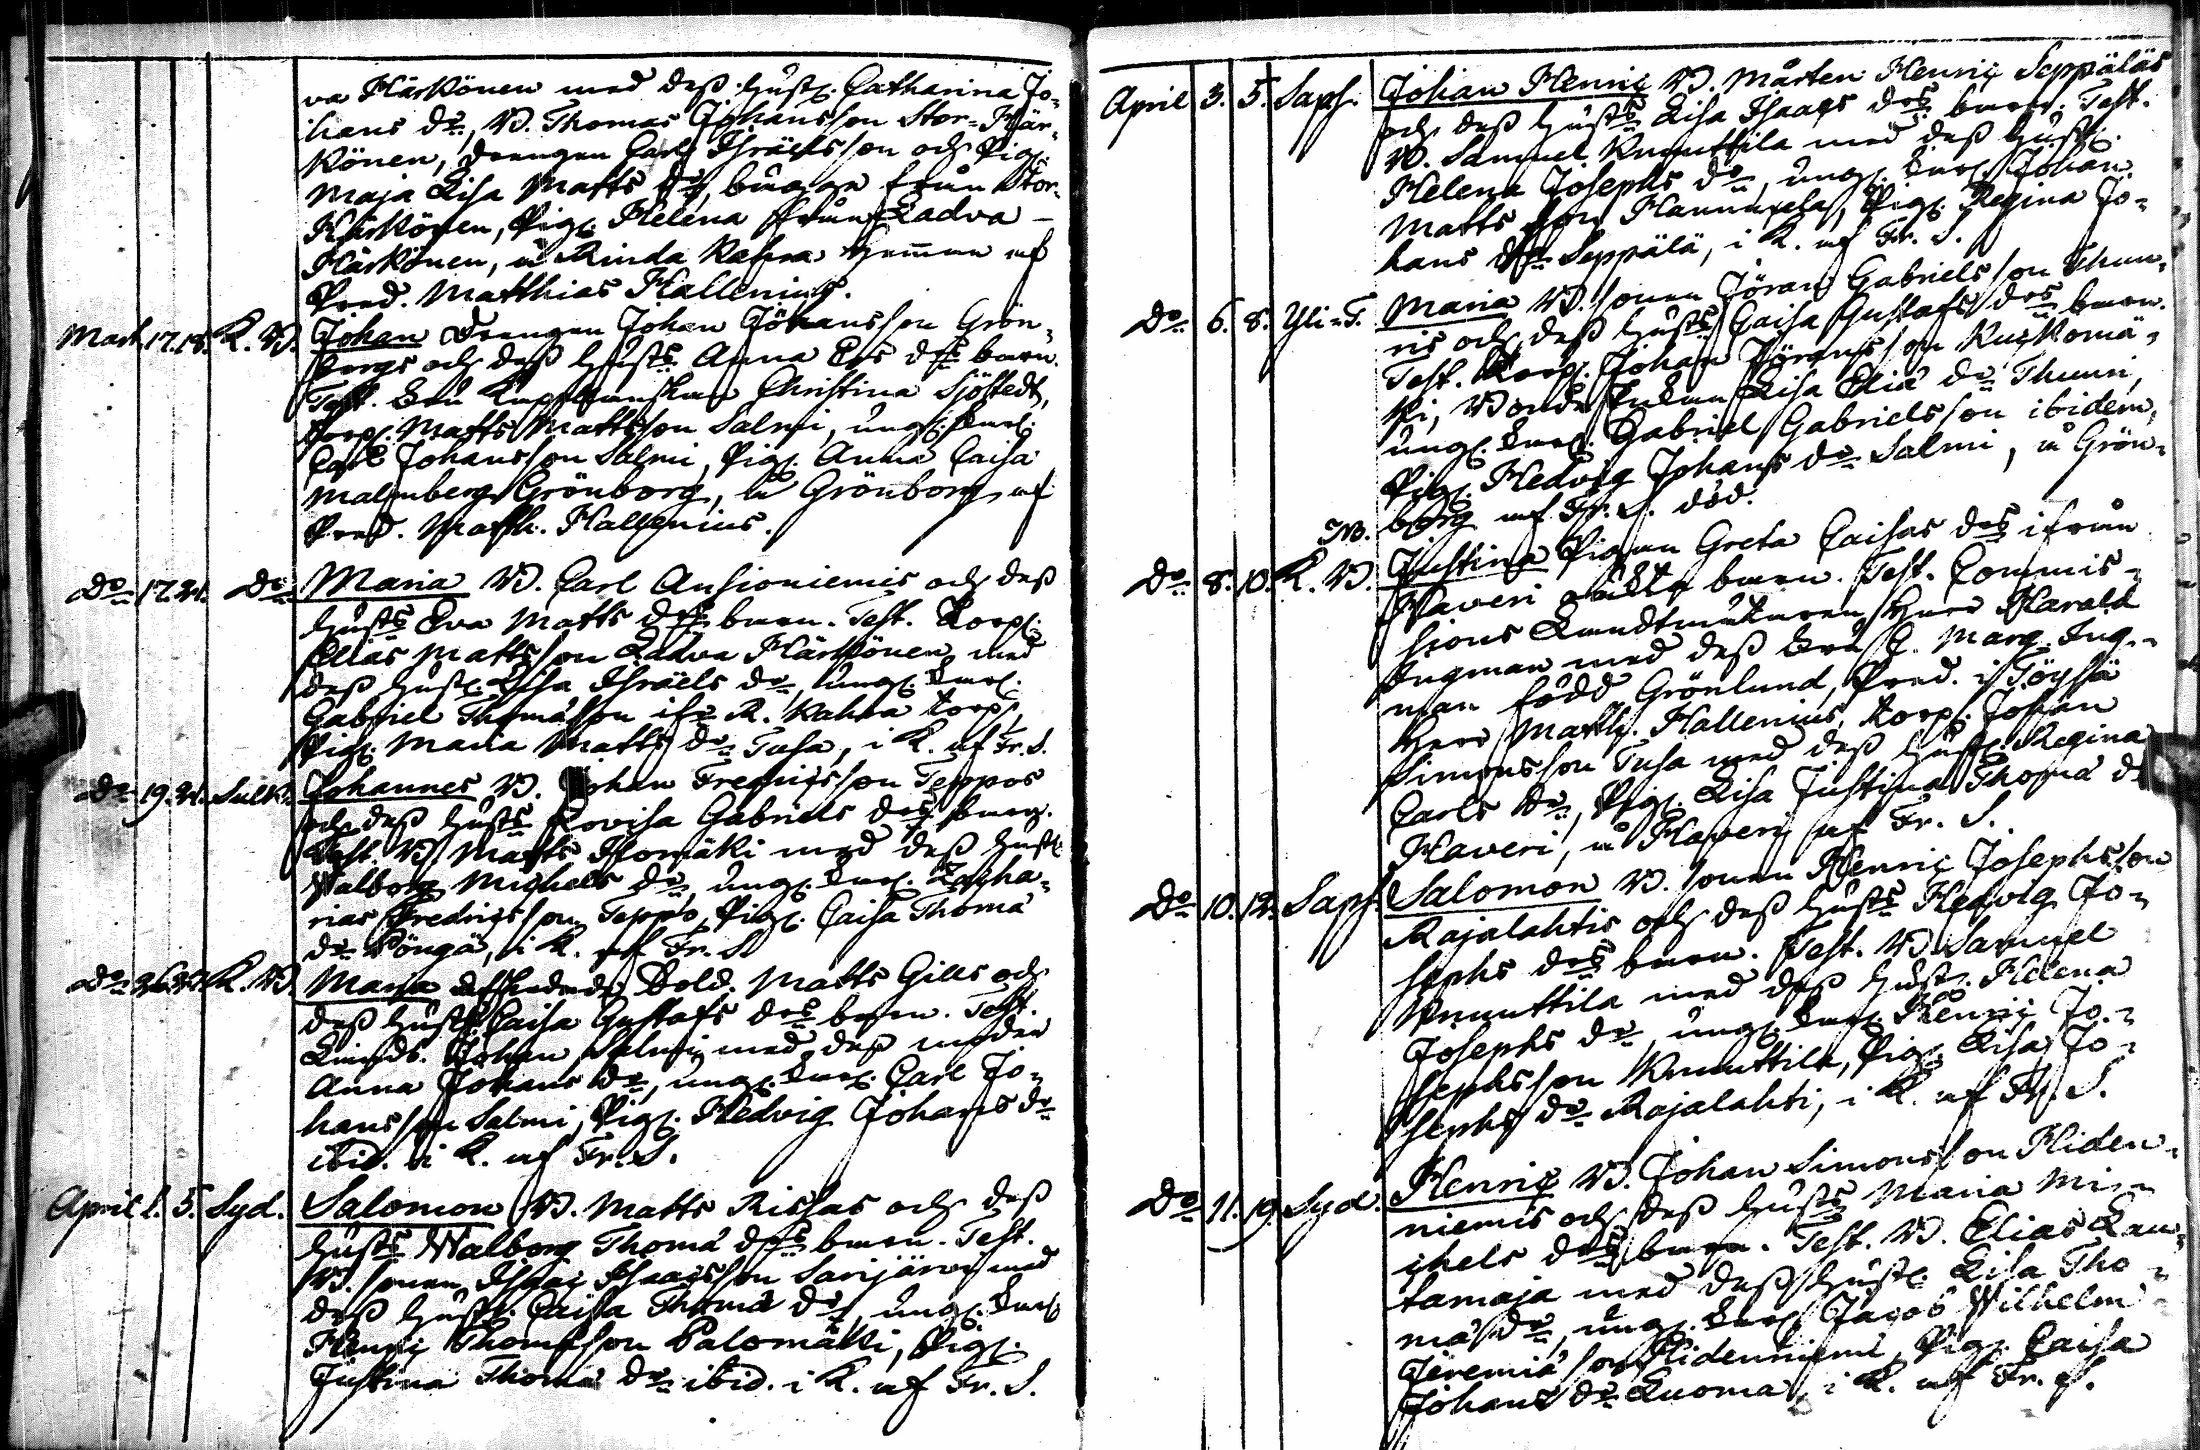 va Härkönen med deß hust. Catharina Jo-
hans dr, B. Thomas Johansson Stor-Här-
könen, drengen Carl Israelsson och Pig.
Maja Lisa Matts dr, bägge från Stor-
Härkönen, Pig. Helena från Ladva-
Härkönen, å Rinda Kahra hemman af
Pred. Matthias Hallenius.
Mart. 17. 18. K. B. Johan Drengen Johan Johansson Grön-
bergs och deß husts Anna Ers drs barn.
Test. Christina Sjöstedt,
Torp. Matts Mattsson Salmi, ungk.
Carl Johansson Salmi, Pig. Anna Caisa
Malmberg Grönborg, å Grönborg af
Pred. Matth. Hallenius.
Do 17. 21. Do Maria B. Carl Ansioniemis och deß
husts Eva Matts drs barn. Test. Torp.
Elias Mattsson Ladva Härkönen med
deß hust. Lisa Israels dr, ungk.
Gabriel Thomasson ifr. R. Kahra torp,
Pig. Maria Matts dr Tusa, i K. af Fr. S.
Do 19. 21. Sulk. Johannes B. Johan Fredricsson Teppos
och deß husts Lovisa Gabriels drs barn.
Test. B. Matts Isomäki med deß hust.
Walborg Michels dr, ungk. Zacha-
rias Fredricsson Teppo, Pig. Caisa Thomæ
dr Pöngä, i K. af Fr. S.
Do K. B. Maria Sold. Matts Gills och
deß husts Caisa Gustafs drs barn. Test.
Johan Salmi med deß moder
Anna Johans dr, ungk. Carl Jo-
hansson Salmi, Pig. Hedvig Johans dr
ibid. i K. af Fr. S.
April 1. 5. Syd. Salomon B. Matts Rissas och deß
husts Walborg Thomæ drs barn. Test.
B. sonen Isaac Isaacsson Sarijärvi med
deß hust. Caisa Thomæ dr, ungk.
Henric Thomasson Palomäki, Pig.
Justina Thomæ dr ibid. i K. af Fr. S.
April 3. 5. Saps. Johan Henric B. Mårten Henric Seppäläs
och deß husts Lisa Isaacs drs barn. Test.
B. Samuel Knuuttila med deß hust.
Helena Josephs dr, ungk. Johan
Mattsson Hannuxela, Pig. Regina Jo-
hans dr Seppälä, i K. af Fr. S.
Do 6. 8. Yli-T. Maria B. sonen Jöran Gabrielsson Thuu-
ris och deß husts Caisa Gustafs drs barn.
Test. Torp. Johan Jöransson Kuckomä-
ki, Bonde Enkan Lisa Eliæ dr Thuuri,
ungk. Gabriel Gabrielsson ibidem,
Pig. Hedvig Johans dr Salmi, å Grön-
borg af Fr. S. död.
Do 8. 10. K. B. Justina Pigan Greta Caisas drs ifrån
Haveri oäkta barn. Test. Commis-
sions Landtmätaren Herr Harald
Ingman med deß Marg. Ing-
man född Grönlund, Pred. i Töysä
Herr Matth. Hallenius, Torp. Johan
Simonsson Tusa med deß hust. Regina
Carls dr, Pig. Lisa Justina Thomæ dr
Haveri, å Haveri af Fr. S.
Do 10. 12. Saps. Salomon B. sonen Henric Josephsson
Rajalahtis och deß husts Hedvig Jo-
sephs drs barn. Test. B. Samuel
Knuuttila med deß hust. Helena
Josephs dr, ungk. Henric Jo-
sephsson Knuuttila, Pig. Lisa Jo-
sephs dr Rajalahti, i K. af Fr. S.
Do 11. 19. Syd. Henric B. Johan Simonsson Hiden-
niemis och deß husts Maria Mi-
chels drs barn. Test. B. Elias Lau-
tamaja med deß hust. Lisa Tho-
mæ dr, ungk. Jacob Wilhelm
Jeremiæson Hidenniemi, Pig. Caisa
Johans dr Luoma, i K. af Fr. S.